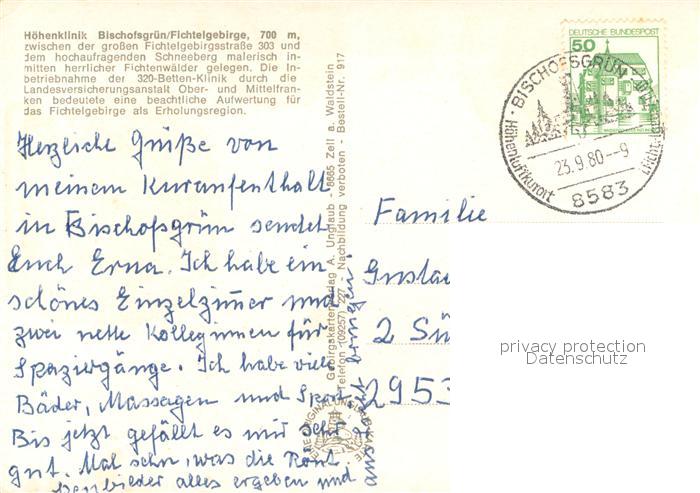 Höhenklinik Bischofsgrün/Fichtelgebirge, 700 m,
zwischen der großen Fichtelgebirgsstraße 303 und
dem hochaufragenden Schneeberg malerisch in-
mitten herrlicher Fichtenwälder gelegen. Die In-
betriebnahme der 320-Betten-Klinik durch die
Landesversicherungsanstalt Ober- und Mittelfran-
ken bedeutete eine beachtliche Aufwertung für
das Fichtelgebirge als Erholungsregion.
Herzliche Grüße von
meinem Kuraufenthalt
in Bischofsgrün sendet
Euch Erna. Ich habe ein
schönes Einzelzimmer und
zwei nette Kolleginnen für
Spaziergänge. Ich habe viel
Bäder, Massagen und Sport.
Bis jetzt gefällt es mir sehr
gut. Mal sehn, was die Rönt
genbilder alles ergeben und
bringen.
Gebirgskartenverlag A. Unglaub - 8665 Zell a. Waldstein
Telefon (09257) 227 - Nachbildung verboten - Bestell-Nr. 917
DEUTSCHE BUNDESPOST
50
BISCHOFSGRÜN
23.9.80--9
Höhenluftkurort
8583
Familie
Gusta
2 Sü
2953
privacy protection
Datenschutz